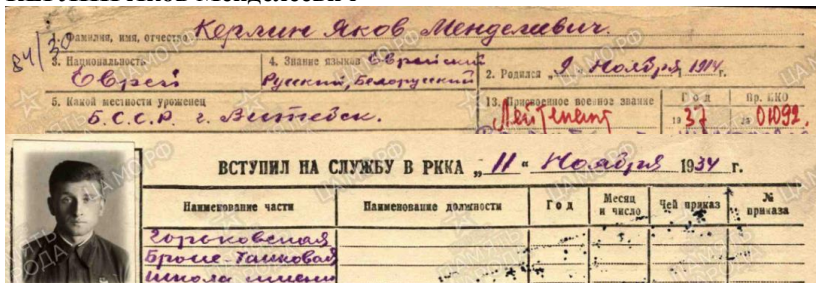 84/30
Фамилия, имя, отчество Керлин Яков Менделевич.
3. Национальность Еврей
4. Знание языков Еврейский
Русский, Белорусский
2. Родился „ 9 Ноября 1914 г.
5. Какой местности уроженец
Б.С.С.Р. г. Витебск.
13. Присвоенное военное звание
Лейтенант
Год
1937
Пр. НКО
№ 01092.
ВСТУПИЛ НА СЛУЖБУ В РККА „ 11 “ Ноября 1934 г.
Наименование части
Наименование должности
Год
Месяц и число
Чей приказ
№ приказа
Горьковская
Броне-Танковая
Школа имени
ЦАМО РФ